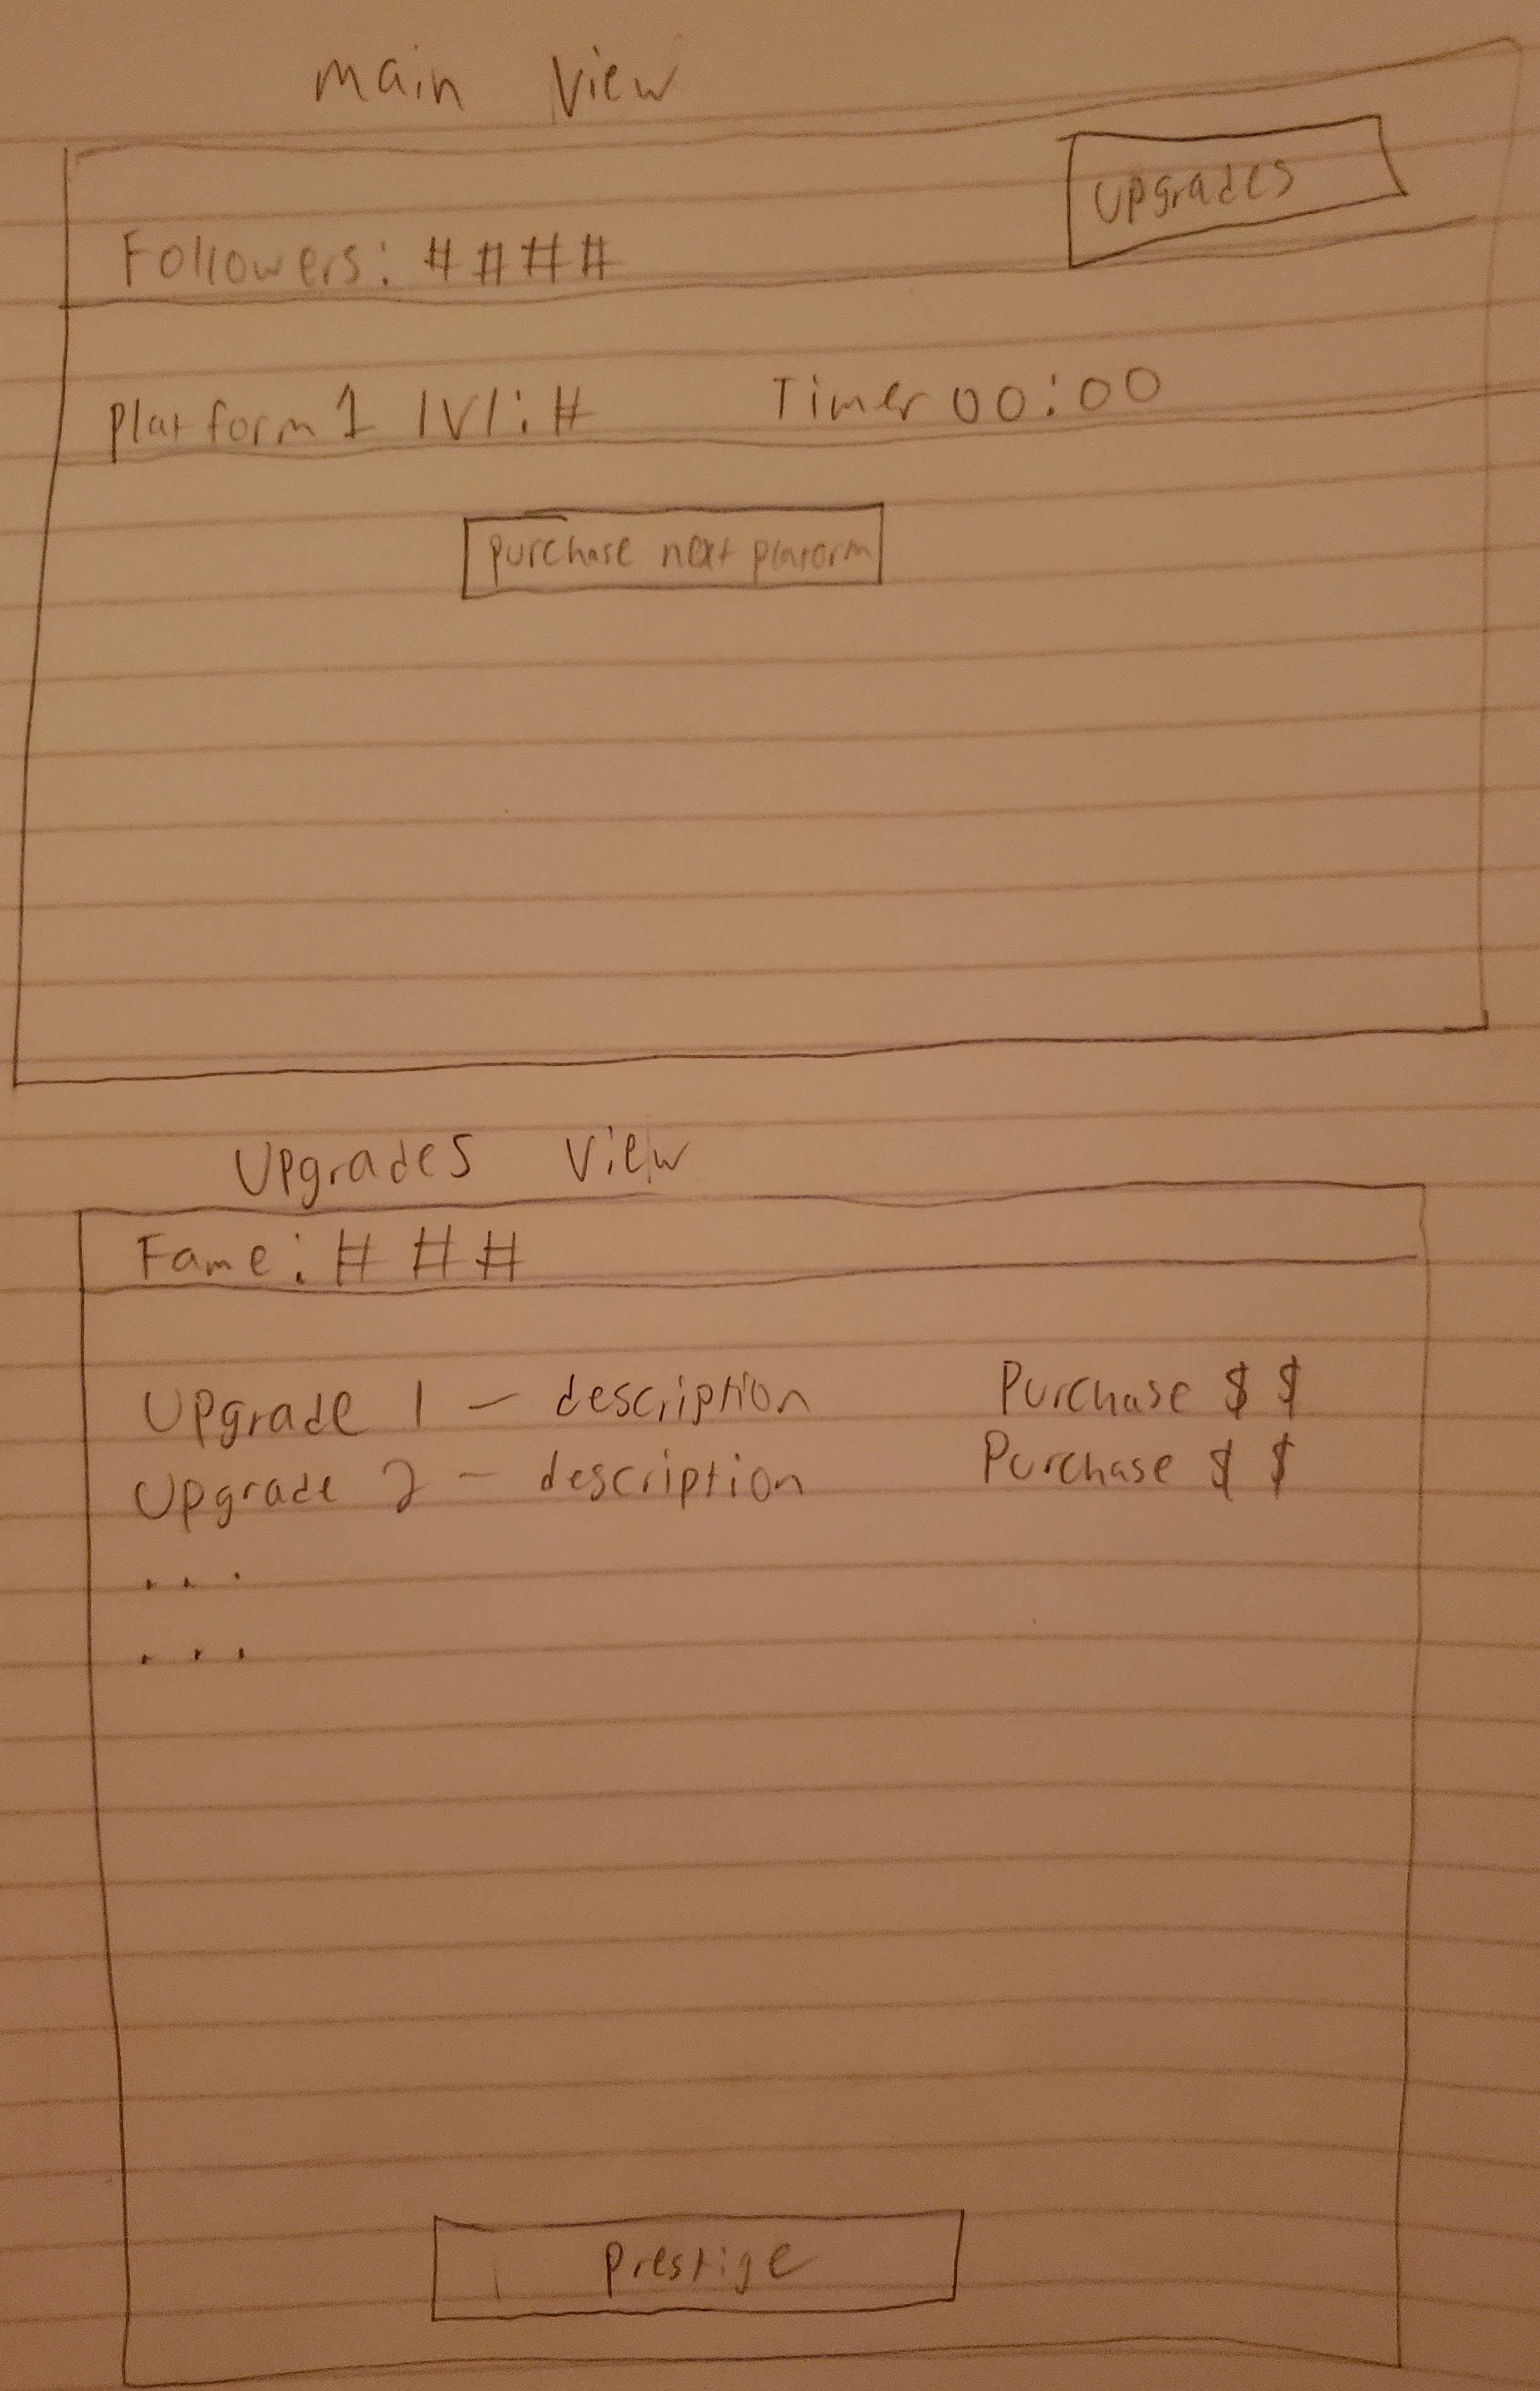 Main View
Upgrades
Followers: ####
Platform 1 lvl: # Timer 00:00
Purchase next platorm
Upgrades View
Fame: ###
Upgrade 1 - description Purchase $$
Upgrade 2 - description Purchase $$
...
...
Prestige